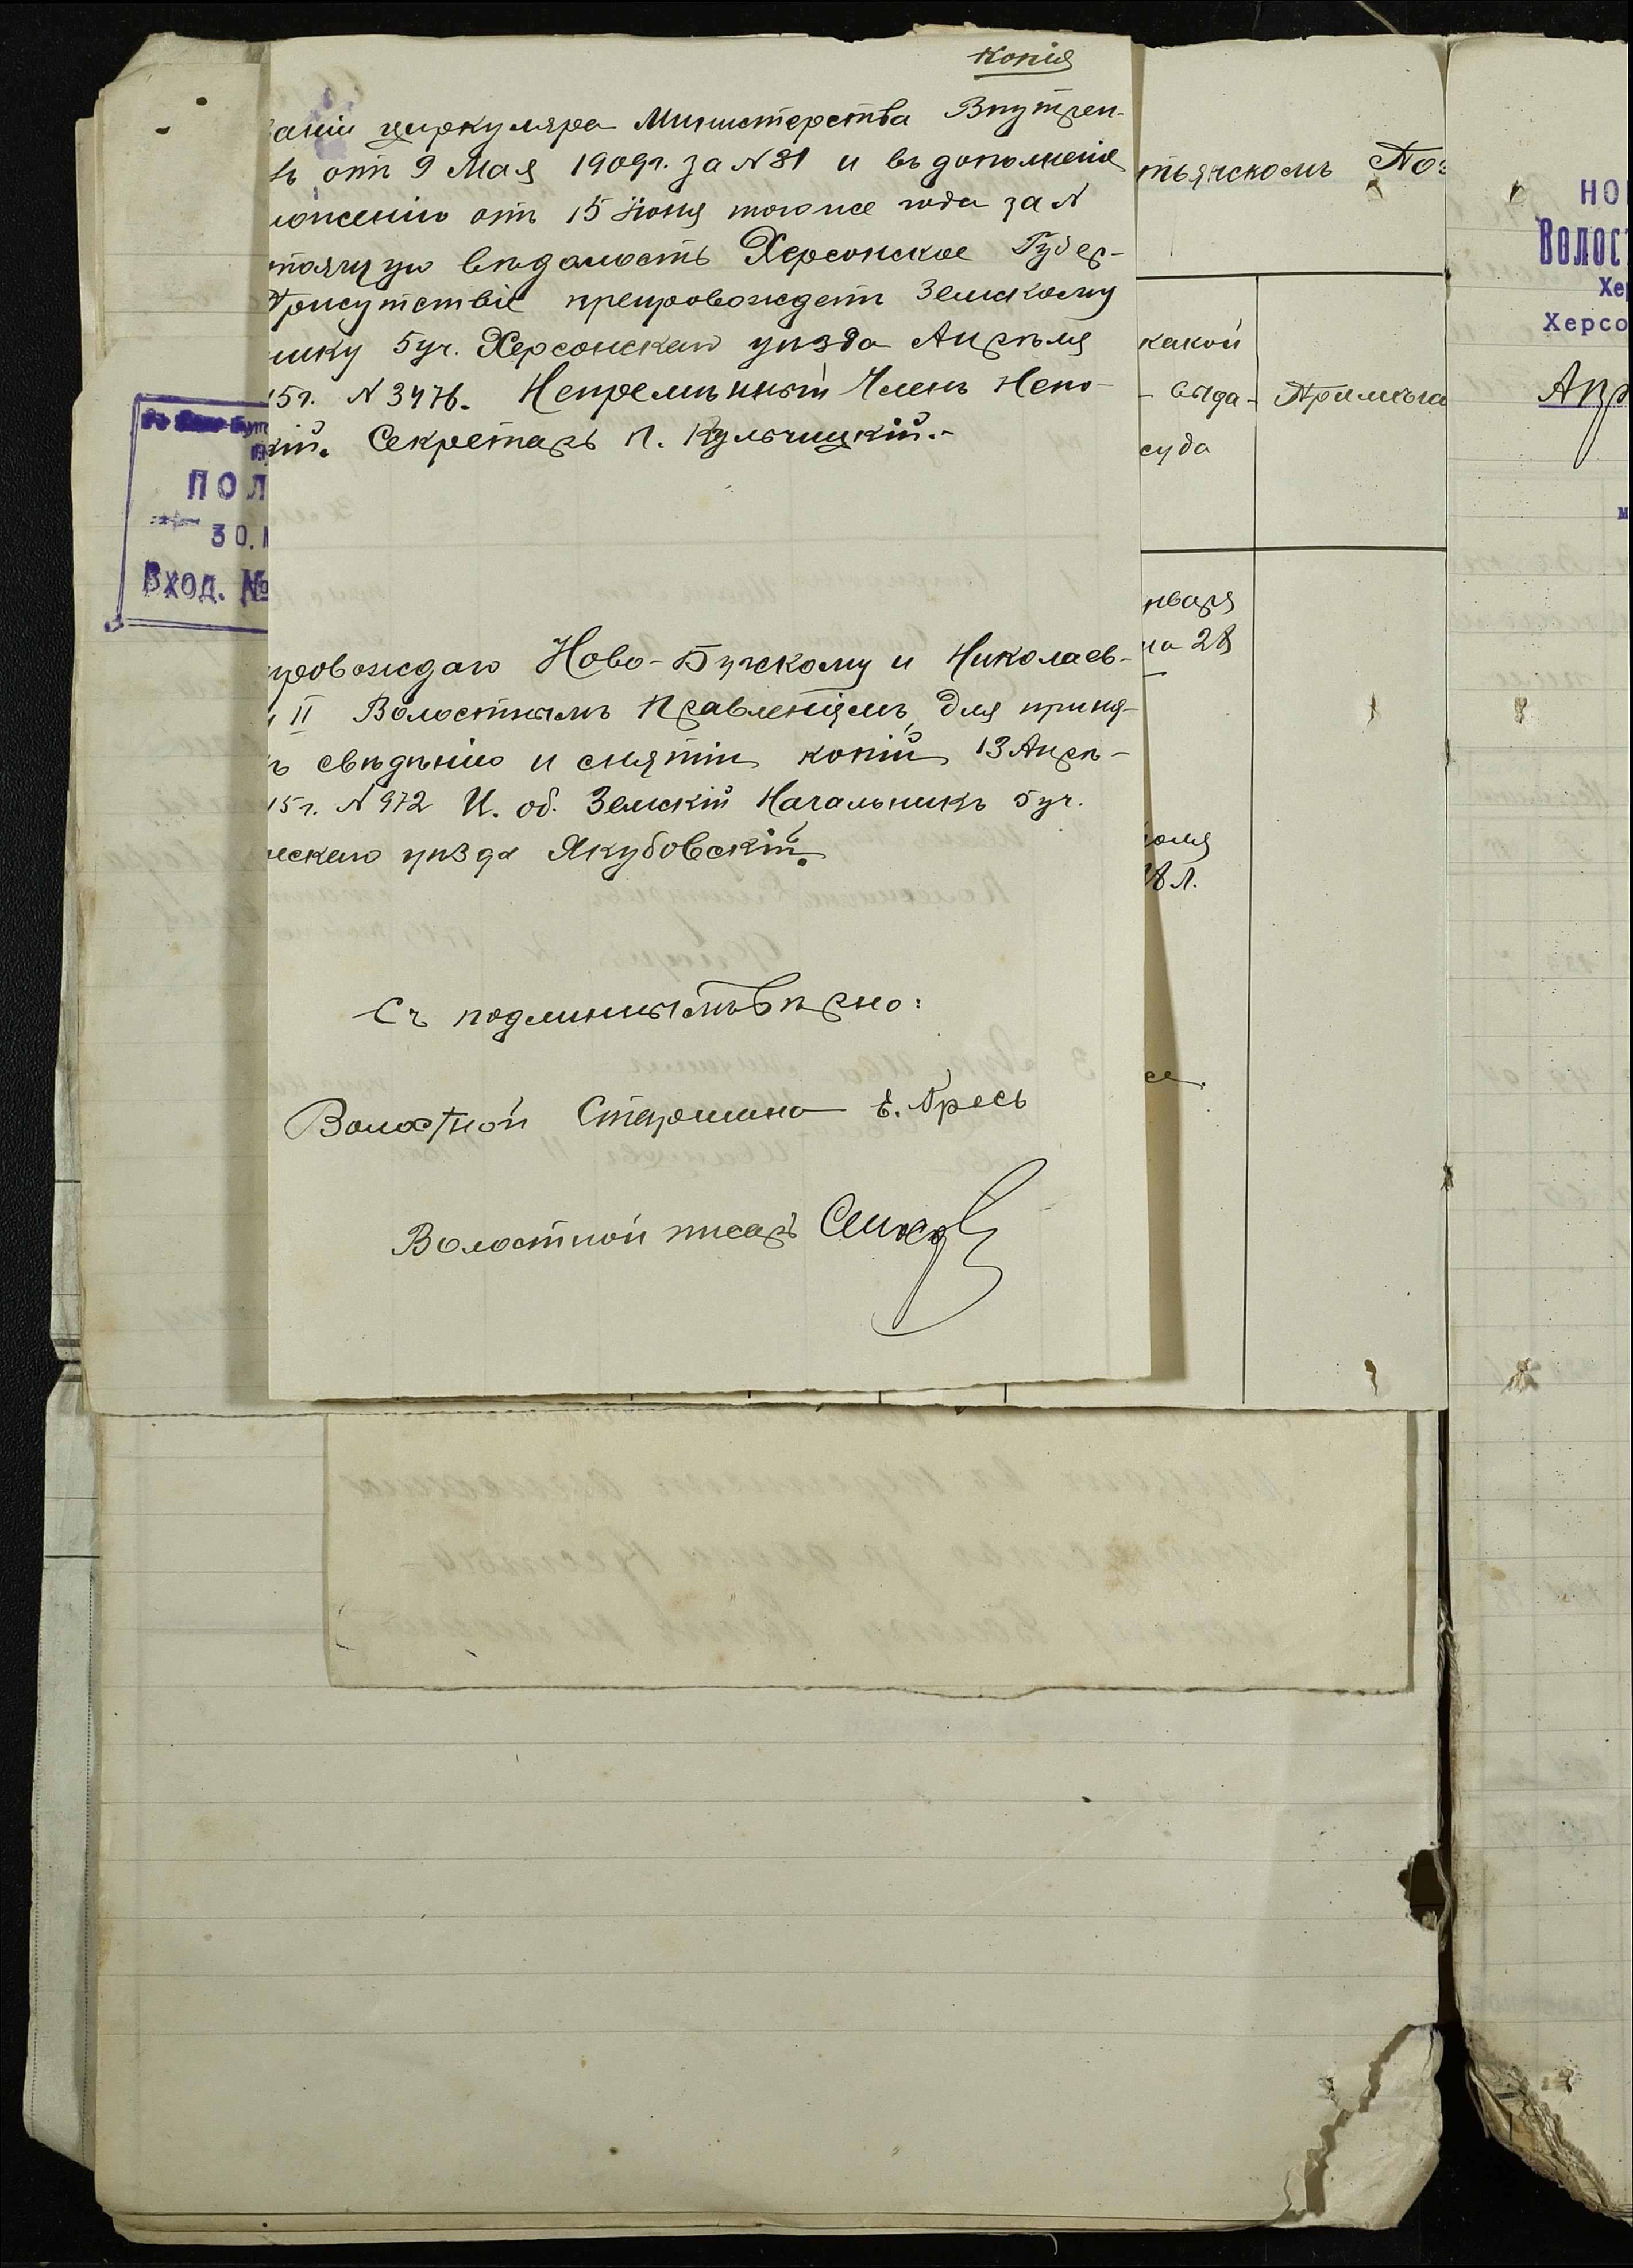 Копія
аніи циркуляра Министерства Внутрен-
ъ отъ 9 Мая 1909г. за N 31 и въ дополненіе
ложенію отъ 15 Іюня того же года за N
тоящую вѣдомость Херсонское Губер-
Присутствіе препровождетъ Земскому
нику 5 уч. Херсонскаго уѣзда Апрѣля
15г. N 3476. Непремѣнный Членъ Непо-
кій. Секретарь П. Кульчицкій.-
проовождаю Ново-Бугскому и Николаев-
II Волостнымъ Правленіямъ, для приня-
ъ свѣдѣнію и снятіи копій 13 Апрѣ-
15г. N 972 И. об. Земскій Начальникъ 5 уч.
нскаго уѣзда Якубовскій.
Съ подлиннымъ вѣрно:
Волостной Старшина Е. Пресъ
Волостной писарь
ПОЛ
30.
Вход. №
тьянскомъ По-
какой
- выда-
суда
Примѣча
нваря
на 28
юля
18 л.
НО
Волос
Хе
Херсо
Апр